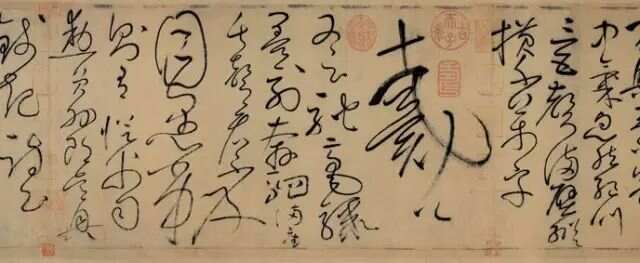 中氣忽然絕叫
三五聲滿壁縱
橫千萬字
戴公
又云馳毫驟
墨列奔駟滿座
失聲看不及
目愚劣
則有從父司
勳員外郎吳興
錢起詩云